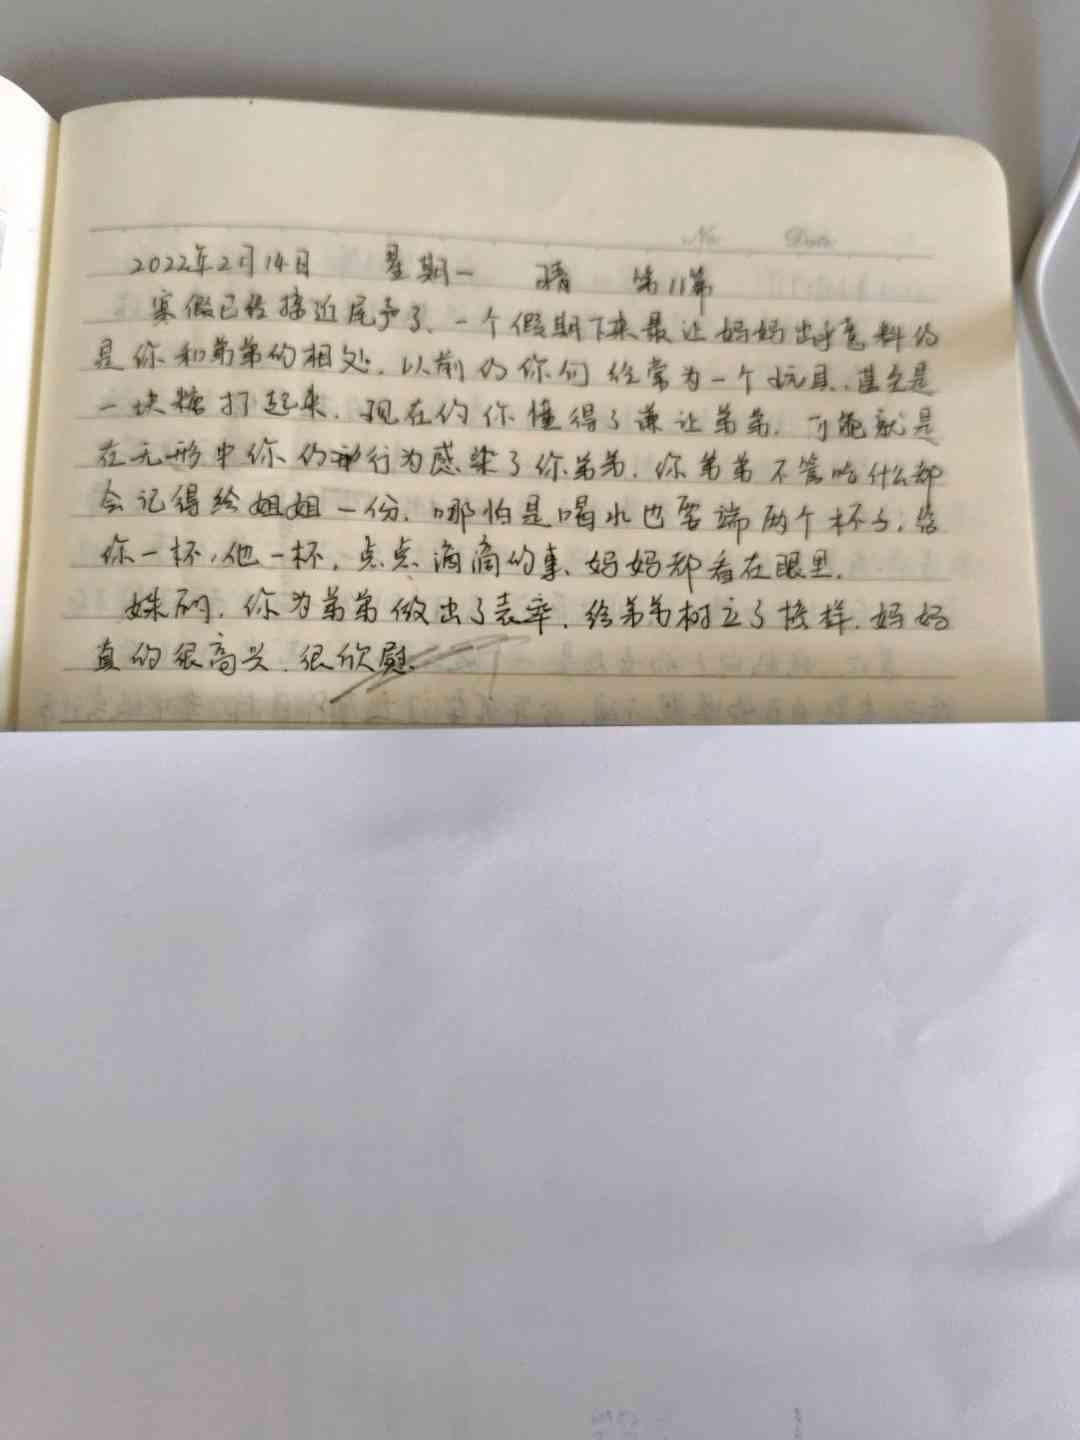 No. Date
2022年2月14日 星期一 晴 第11篇
寒假已经接近尾声了，一个假期下来最让妈妈出乎意料的
是你和弟弟的相处，以前的你们经常为一个玩具，甚至是
一块糖打起来，现在的你懂得了谦让弟弟，可能就是
在无形中你的行为感染了你弟弟，你弟弟不管吃什么都
会记得给姐姐一份，哪怕是喝水也要端两个杯子，给
你一杯，他一杯，点点滴滴的事、妈妈都看在眼里，
姝丽，你为弟弟做出了表率，给弟弟树立了榜样，妈妈
真的很高兴，很欣慰。